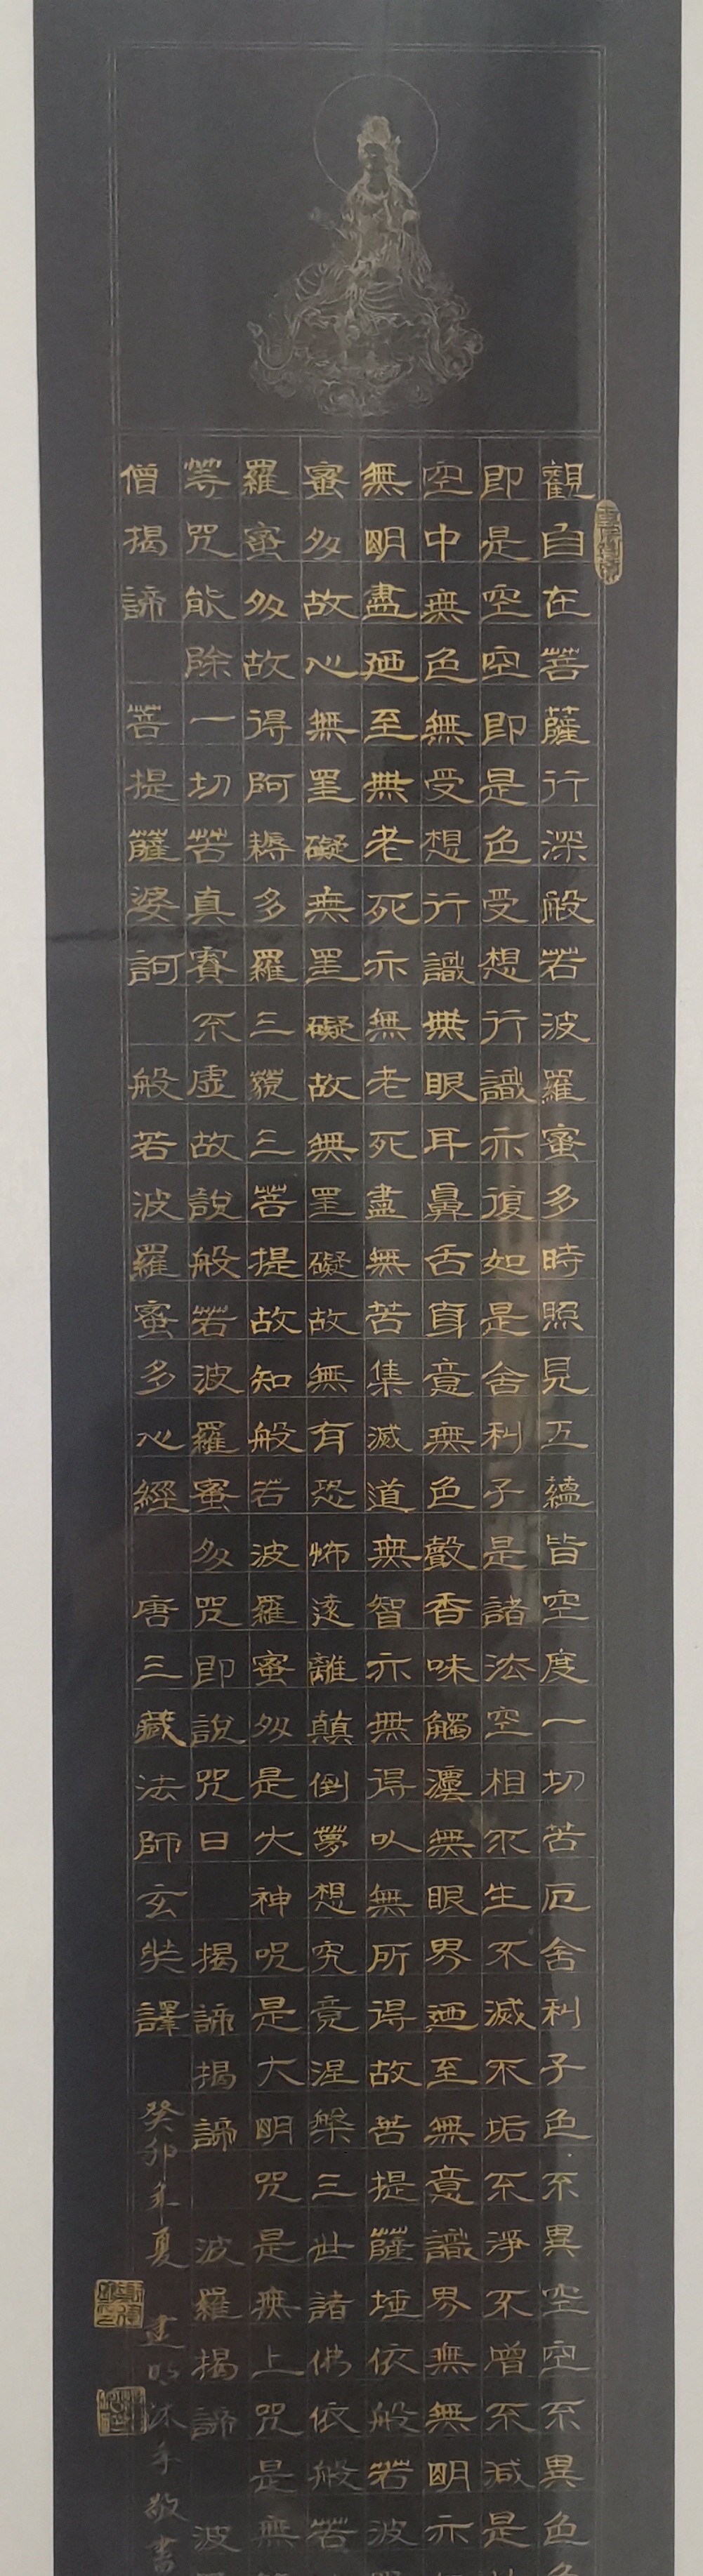 觀自在菩薩行深般若波羅蜜多時照見五蘊皆空度一切苦厄舍利子色不異空空不異色
即是空空即是色受想行識亦復如是舍利子是諸法空相不生不滅不垢不淨不增不減是
空中無色無受想行識無眼耳鼻舌身意無色聲香味觸灋無眼界廼至無意識界無無明亦
無明盡廼至無老死亦無老死盡無苦集滅道無智亦無得以無所得故菩提薩埵依般若波
蜜多故心無罣礙無罣礙故無罣礙故無有恐怖遠離顛倒夢想究竟涅槃三世諸佛依般若
羅蜜多故得阿耨多羅三藐三菩提故知般若波羅蜜多是大神咒是大明咒是無上咒是無
等咒能除一切苦真實不虛故說般若波羅蜜多咒即說咒曰 揭諦揭諦 波羅揭諦 波
僧揭諦 菩提薩婆訶 般若波羅蜜多心經 唐三藏法師玄奘譯 癸卯年夏 建明沐手敬書